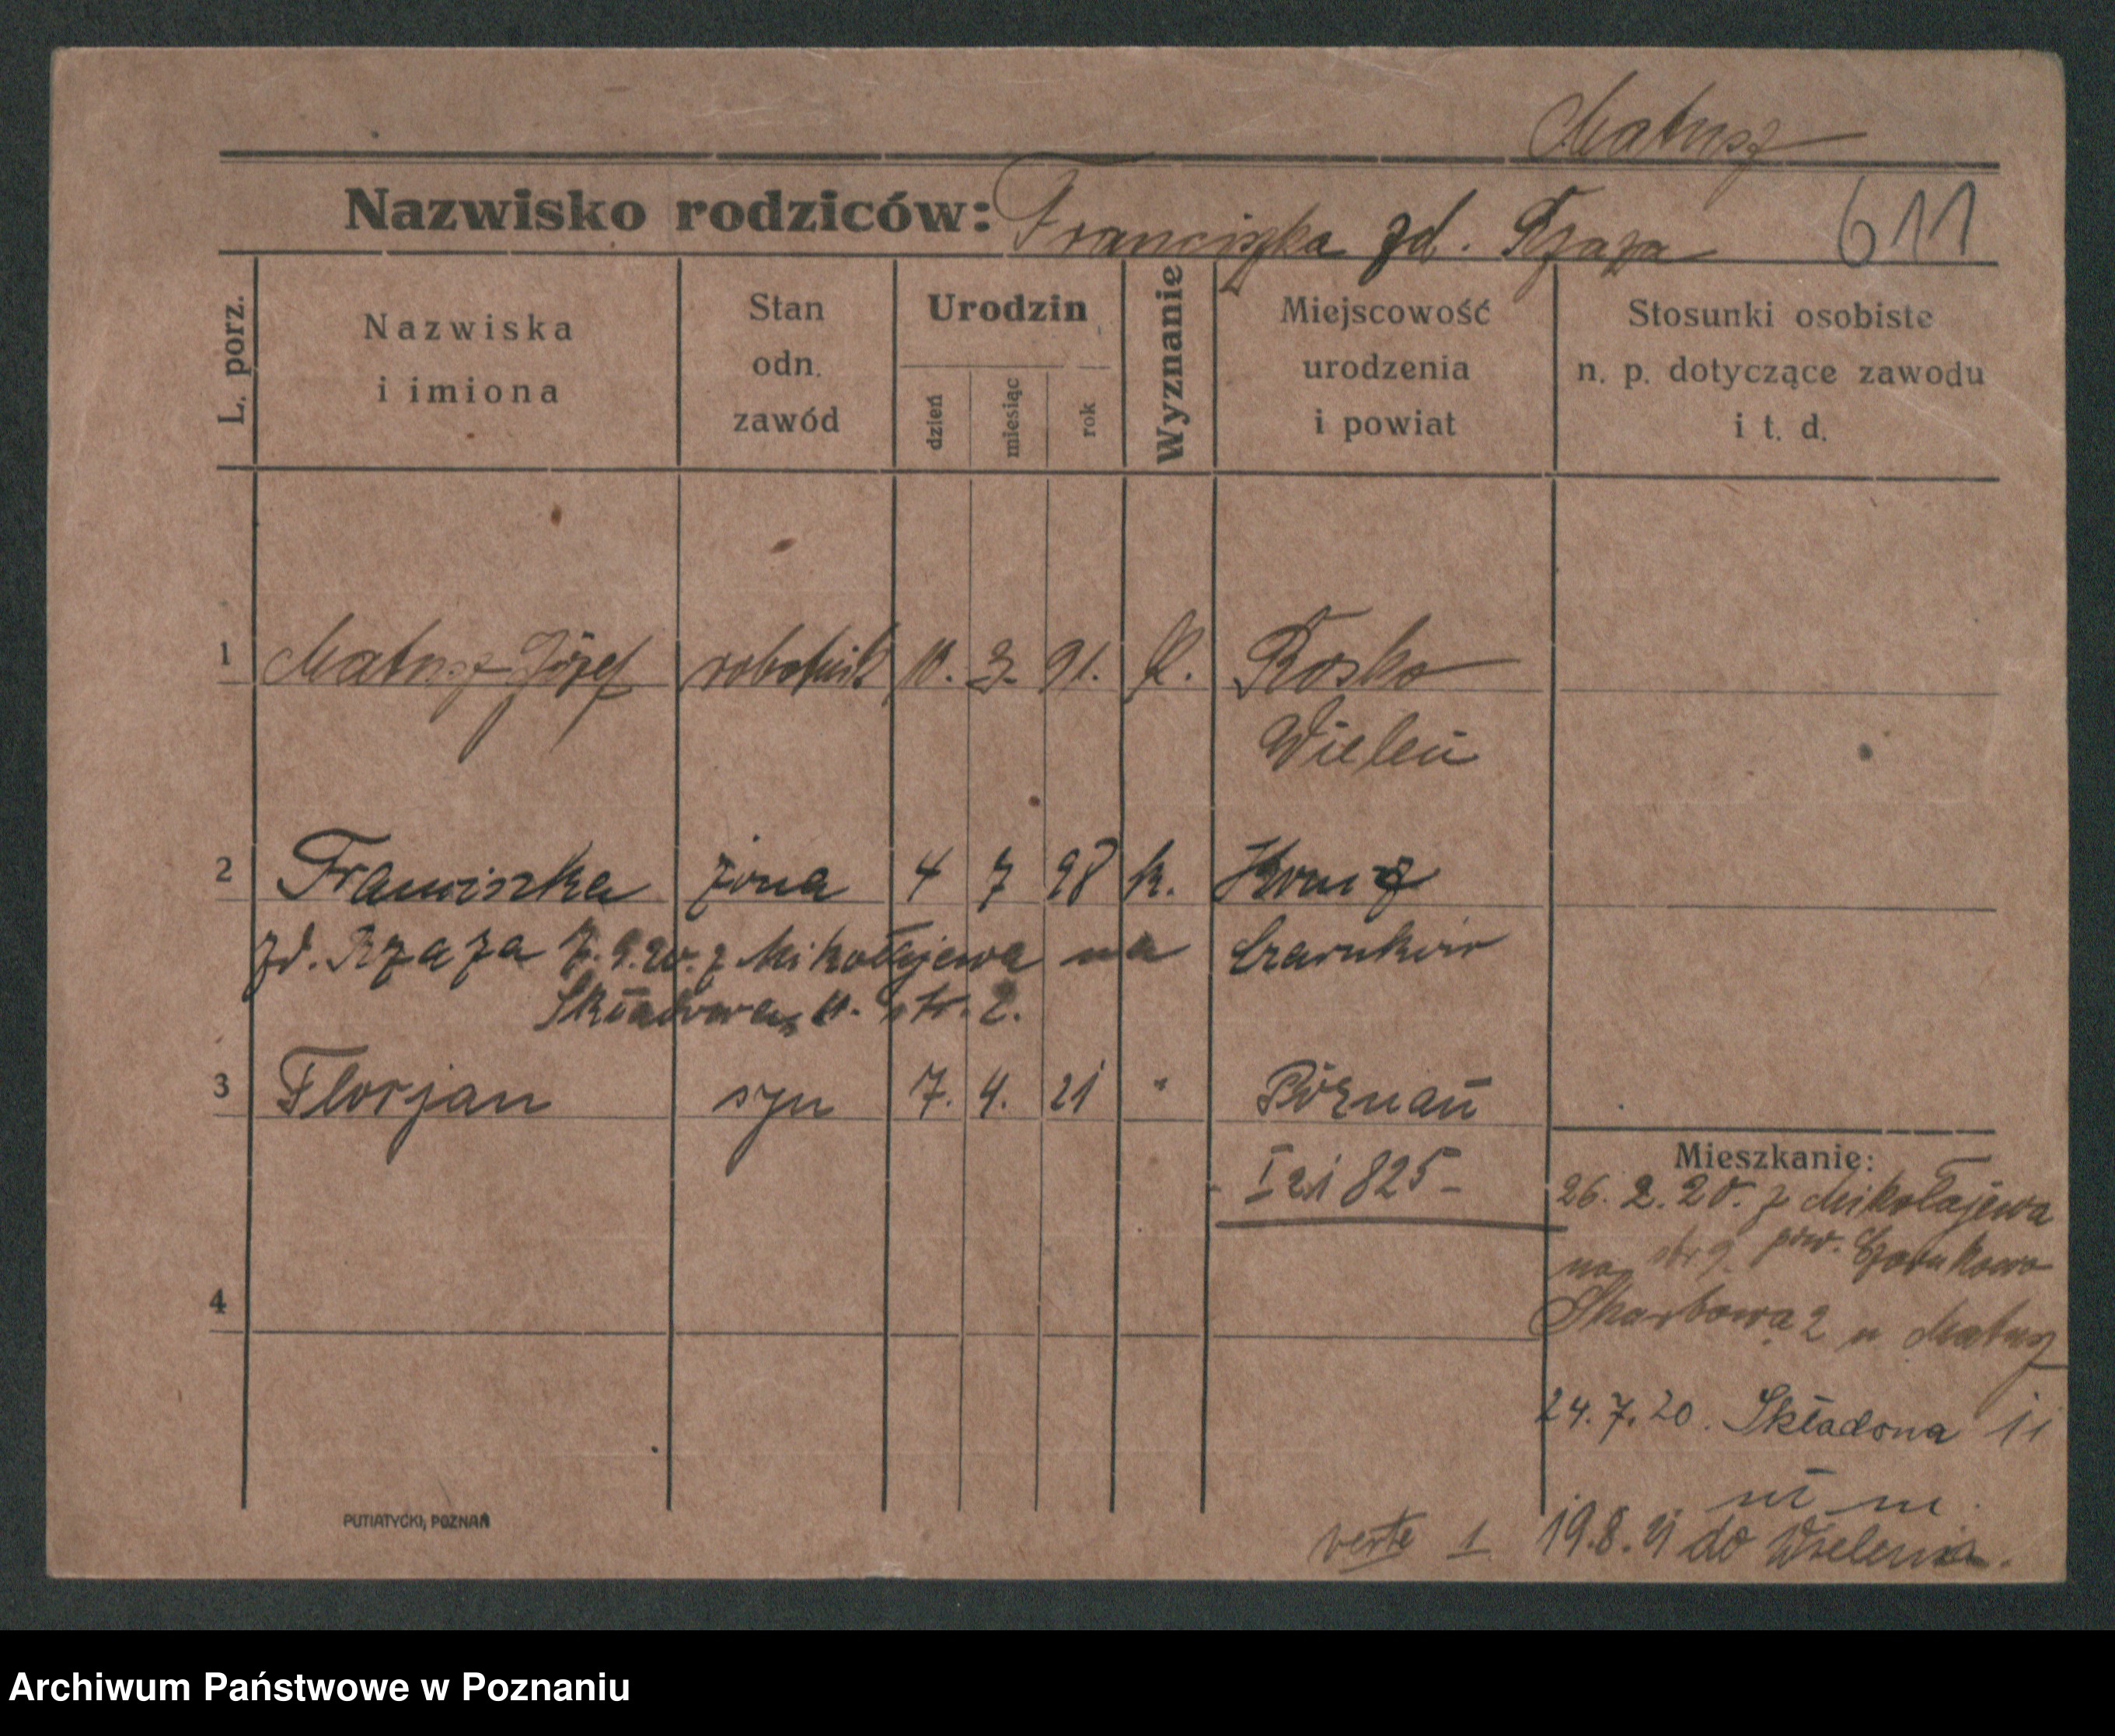 Matusz
Nazwisko rodziców: Franciszka zd. Rzaza 611
L. porz.
Nazwiska
i imiona
Stan
odn.
zawód
Urodzin
dzień
miesiąc
rok
Wyznanie
Miejscowość
urodzenia
i powiat
Stosunki osobiste
n. p. dotyczące zawodu
i t. d.
1 Matusz Józef robotnik 10. 3. 91. k. Rosko
Wieleń
2 Franciszka żona 4 7 98 k.
zd. Rzaza 7.9.20. z Mikołajewa na Czarnków
str. 2.
3 Florjan syn 7. 4. 21 " Poznań
I 21 825
4
Mieszkanie:
26. 2. 20. z Mikołajewa
na pow. Czarnkowo
Skarbowa 2 u Matusz
24.7.20. Składowa 11
19.8.21 do Wielenia.
verte 1
PUTIATYCKI, POZNAŃ
Archiwum Państwowe w Poznaniu